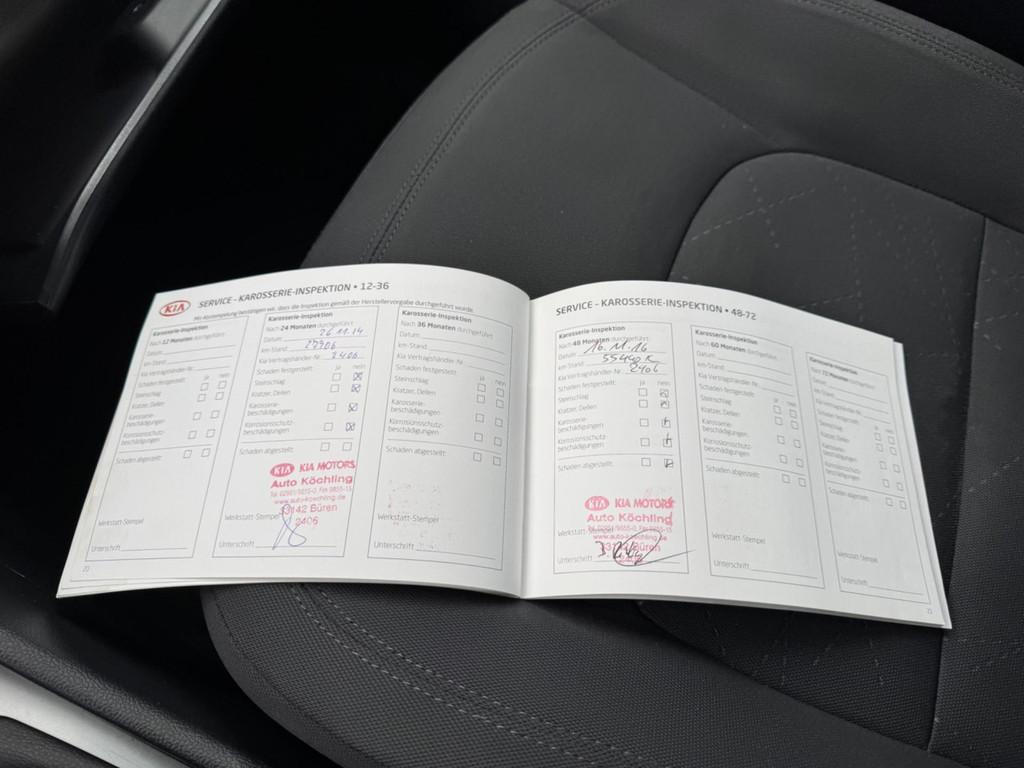 KIA
SERVICE – KAROSSERIE-INSPEKTION • 12-36
Mit Abstempelung bestätigen wir, dass die Inspektion gemäß der Herstellervorgabe durchgeführt wurde.
Karosserie-Inspektion
Nach 12 Monaten durchgeführt:
Datum
km-Stand
Kia Vertragshändler-Nr.
Schäden festgestellt: ja nein
Steinschlag
Kratzer, Dellen
Karosserie-
beschädigungen
Korrosionsschutz-
beschädigungen
Schäden abgestellt:
Werkstatt-Stempel
Unterschrift
Karosserie-Inspektion
Nach 24 Monaten durchgeführt:
Datum 26.11.14
km-Stand
Kia Vertragshändler-Nr. 2406
Schäden festgestellt: ja nein
Steinschlag
Kratzer, Dellen
Karosserie-
beschädigungen
Korrosionsschutz-
beschädigungen
Schäden abgestellt:
KIA KIA MOTORS
Auto Köchling
Tel. 02951/9855-0, Fax 9855-15
www.auto-koechling.de
33142 Büren
Werkstatt-Stempel 2406
Unterschrift
Karosserie-Inspektion
Nach 36 Monaten durchgeführt:
Datum
km-Stand
Kia Vertragshändler-Nr.
Schäden festgestellt: ja nein
Steinschlag
Kratzer, Dellen
Karosserie-
beschädigungen
Korrosionsschutz-
beschädigungen
Schäden abgestellt:
Werkstatt-Stempel
Unterschrift
SERVICE – KAROSSERIE-INSPEKTION • 48-72
Karosserie-Inspektion
Nach 48 Monaten durchgeführt:
Datum 16.11.16
km-Stand
Kia Vertragshändler-Nr. 2406
Schäden festgestellt: ja nein
Steinschlag
Kratzer, Dellen
Karosserie-
beschädigungen
Korrosionsschutz-
beschädigungen
Schäden abgestellt:
KIA KIA MOTORS
Auto Köchling
Tel. 02951/9855-0, Fax 9855-15
www.auto-koechling.de
Werkstatt-Stempel
33142 Büren
Unterschrift
Karosserie-Inspektion
Nach 60 Monaten durchgeführt:
Datum
km-Stand
Kia Vertragshändler-Nr.
Schäden festgestellt: ja nein
Steinschlag
Kratzer, Dellen
Karosserie-
beschädigungen
Korrosionsschutz-
beschädigungen
Schäden abgestellt:
Werkstatt-Stempel
Unterschrift
Karosserie-Inspektion
Nach 72 Monaten durchgeführt:
Datum
km-Stand
Kia Vertragshändler-Nr.
Schäden festgestellt: ja nein
Steinschlag
Kratzer, Dellen
Karosserie-
beschädigungen
Korrosionsschutz-
beschädigungen
Schäden abgestellt:
Werkstatt-Stempel
Unterschrift